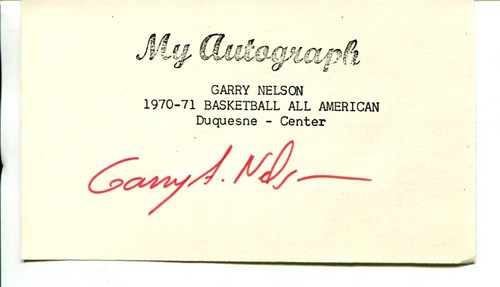 My Autograph
GARRY NELSON
1970-71 BASKETBALL ALL AMERICAN
Duquesne - Center
Garry A. Nelson